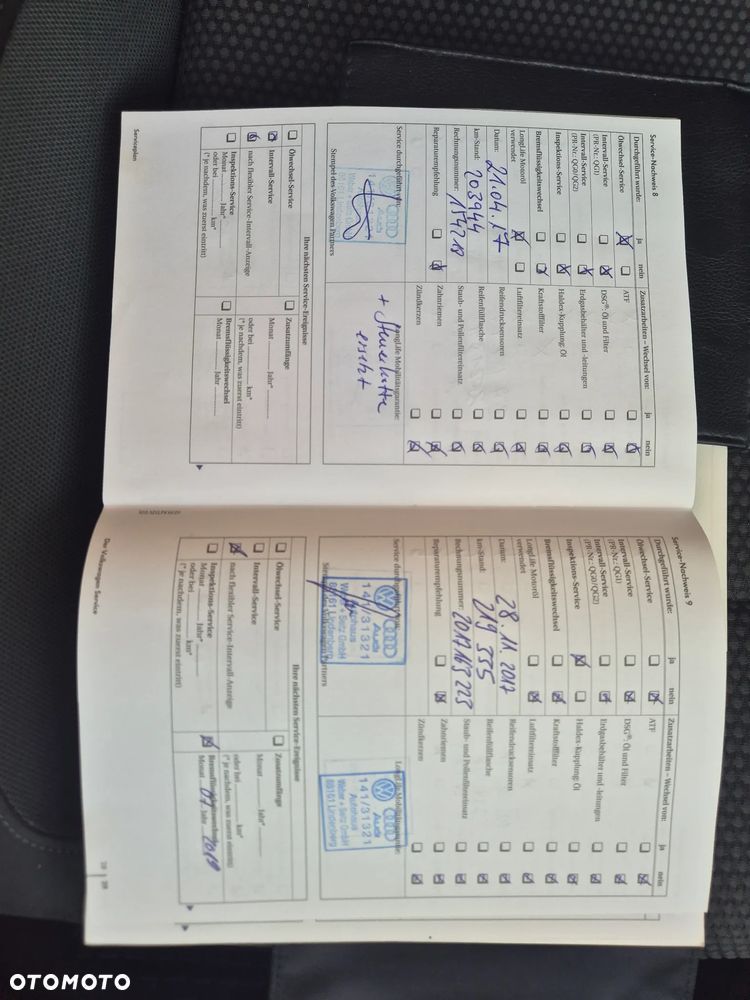 Service-Nachweis 8
Durchgeführt wurde: ja nein
Ölwechsel-Service
Intervall-Service
(PR-Nr.: QG1)
Intervall-Service
(PR-Nr.: QG0/QG2)
Inspektions-Service
Bremsflüssigkeitswechsel
LongLife Motoröl
verwendet
Datum: 21.04.17
km-Stand: 203944
Rechnungsnummer: 154218
Reparaturempfehlung
Service durchgeführt von:
Stempel des Volkswagen Partners
Zusatzarbeiten – Wechsel von: ja nein
ATF
DSG®: Öl und Filter
Erdgasbehälter und -leitungen
Haldex-Kupplung Öl
Kraftstofffilter
Luftfiltereinsatz
Reifendrucksensoren
Reifenfüllflasche
Staub- und Pollenfiltereinsatz
Zahnriemen
Zündkerzen
LongLife Mobilitätsgarantie:
+ Steuerkette
ersetzt
Ihre nächsten Service-Ereignisse
Ölwechsel-Service
Intervall-Service
nach flexibler Service-Intervall-Anzeige
Inspektions-Service
Monat Jahr*
oder bei km*
(* je nachdem, was zuerst eintritt)
Zusatzumfänge
Monat Jahr*
oder bei km*
(* je nachdem, was zuerst eintritt)
Bremsflüssigkeitswechsel
Monat Jahr
Serviceplan
Service-Nachweis 9
Durchgeführt wurde: ja nein
Ölwechsel-Service
Intervall-Service
(PR-Nr.: QG1)
Intervall-Service
(PR-Nr.: QG0/QG2)
Inspektions-Service
Bremsflüssigkeitswechsel
LongLife Motoröl
verwendet
Datum: 28.11.2017
km-Stand: 219 335
Rechnungsnummer: 2017163223
Reparaturempfehlung
Service durchgeführt von:
141/31321
Audi
Autohaus
Weber + Seitz GmbH
88161 Lindenberg
Zusatzarbeiten – Wechsel von: ja nein
ATF
DSG®: Öl und Filter
Erdgasbehälter und -leitungen
Haldex-Kupplung Öl
Kraftstofffilter
Luftfiltereinsatz
Reifendrucksensoren
Reifenfüllflasche
Staub- und Pollenfiltereinsatz
Zahnriemen
Zündkerzen
LongLife Mobilitätsgarantie:
141/31321
Audi
Autohaus
Weber + Seitz GmbH
88161 Lindenberg
Ihre nächsten Service-Ereignisse
Ölwechsel-Service
Intervall-Service
nach flexibler Service-Intervall-Anzeige
Inspektions-Service
Monat Jahr*
oder bei km*
(* je nachdem, was zuerst eintritt)
Zusatzumfänge
Monat Jahr*
oder bei km*
(* je nachdem, was zuerst eintritt)
Bremsflüssigkeitswechsel
Monat 07 Jahr 2019
Der Volkswagen Service
OTOMOTO